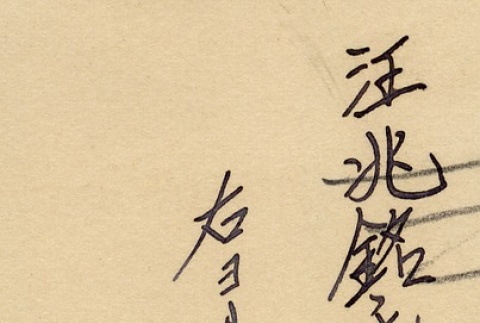 汪兆銘
右ヨリ